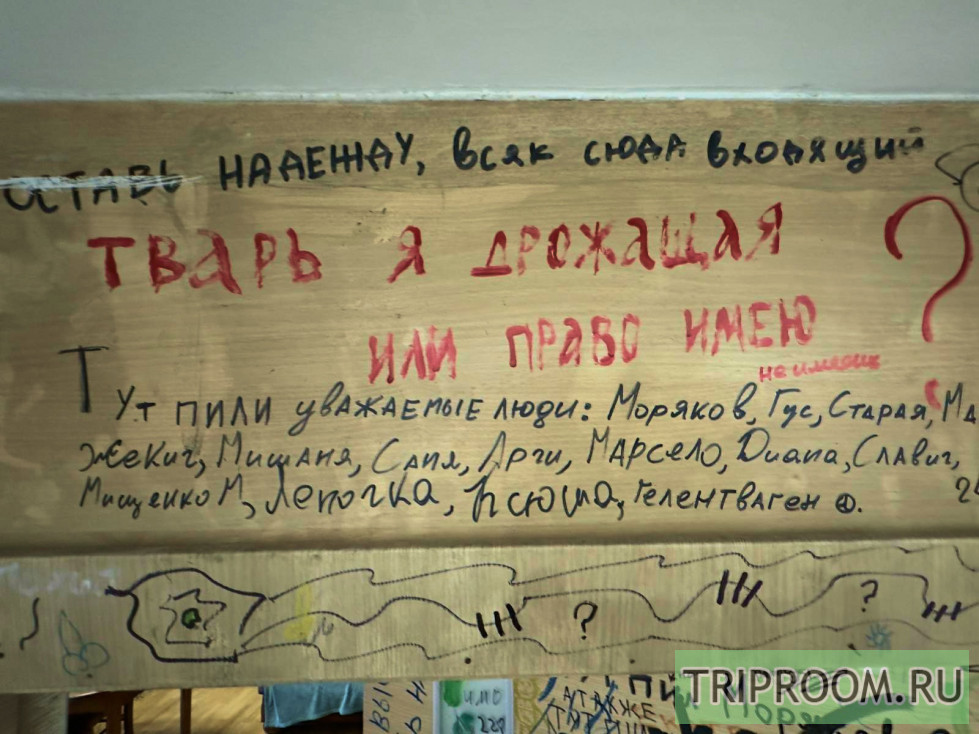 ОСТАВЬ НАДЕЖДУ, всяк сюда входящий
ТВАРЬ Я ДРОЖАЩАЯ
ИЛИ ПРАВО ИМЕЮ ?
Тут пили уважаемые люди: Моряков, Гус, Старая, Ма
Жекич, Мишаня, Саня, Арги, Марсело, Диана, Славич,
Мищенко М, Леночка, Ксюша, Гелентваген
? ?
имо
228
А ТАКЖЕ
TRIPROOM.RU